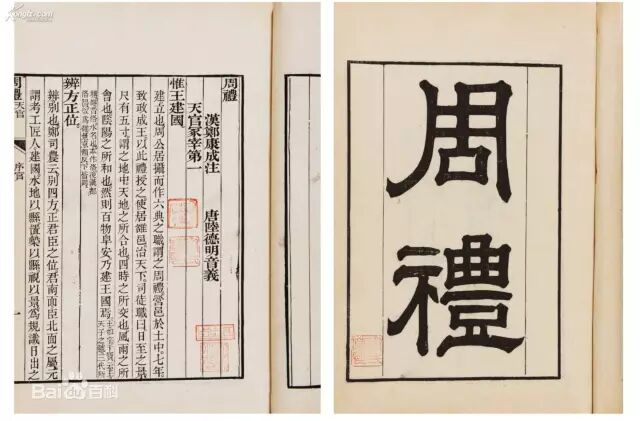 周禮
天官冢宰第一
漢鄭康成注
唐陸德明音義
惟王建國
建立也周公居攝而作六典之職謂之周禮營邑於土中七年
致政成王以此禮授之使居雒邑治天下司徒職曰日至之景
尺有五寸謂之地中天地之所合也四時之所交也風雨之所
會也陰陽之所和也然則百物阜安乃建王國焉
辨方正位
辨别也鄭司農云别四方正君臣之位君南面臣北面之屬元
謂考工匠人建國水地以縣置槷以縣視以景爲規識日出之
周禮
天官
序官
周禮
Bai百科